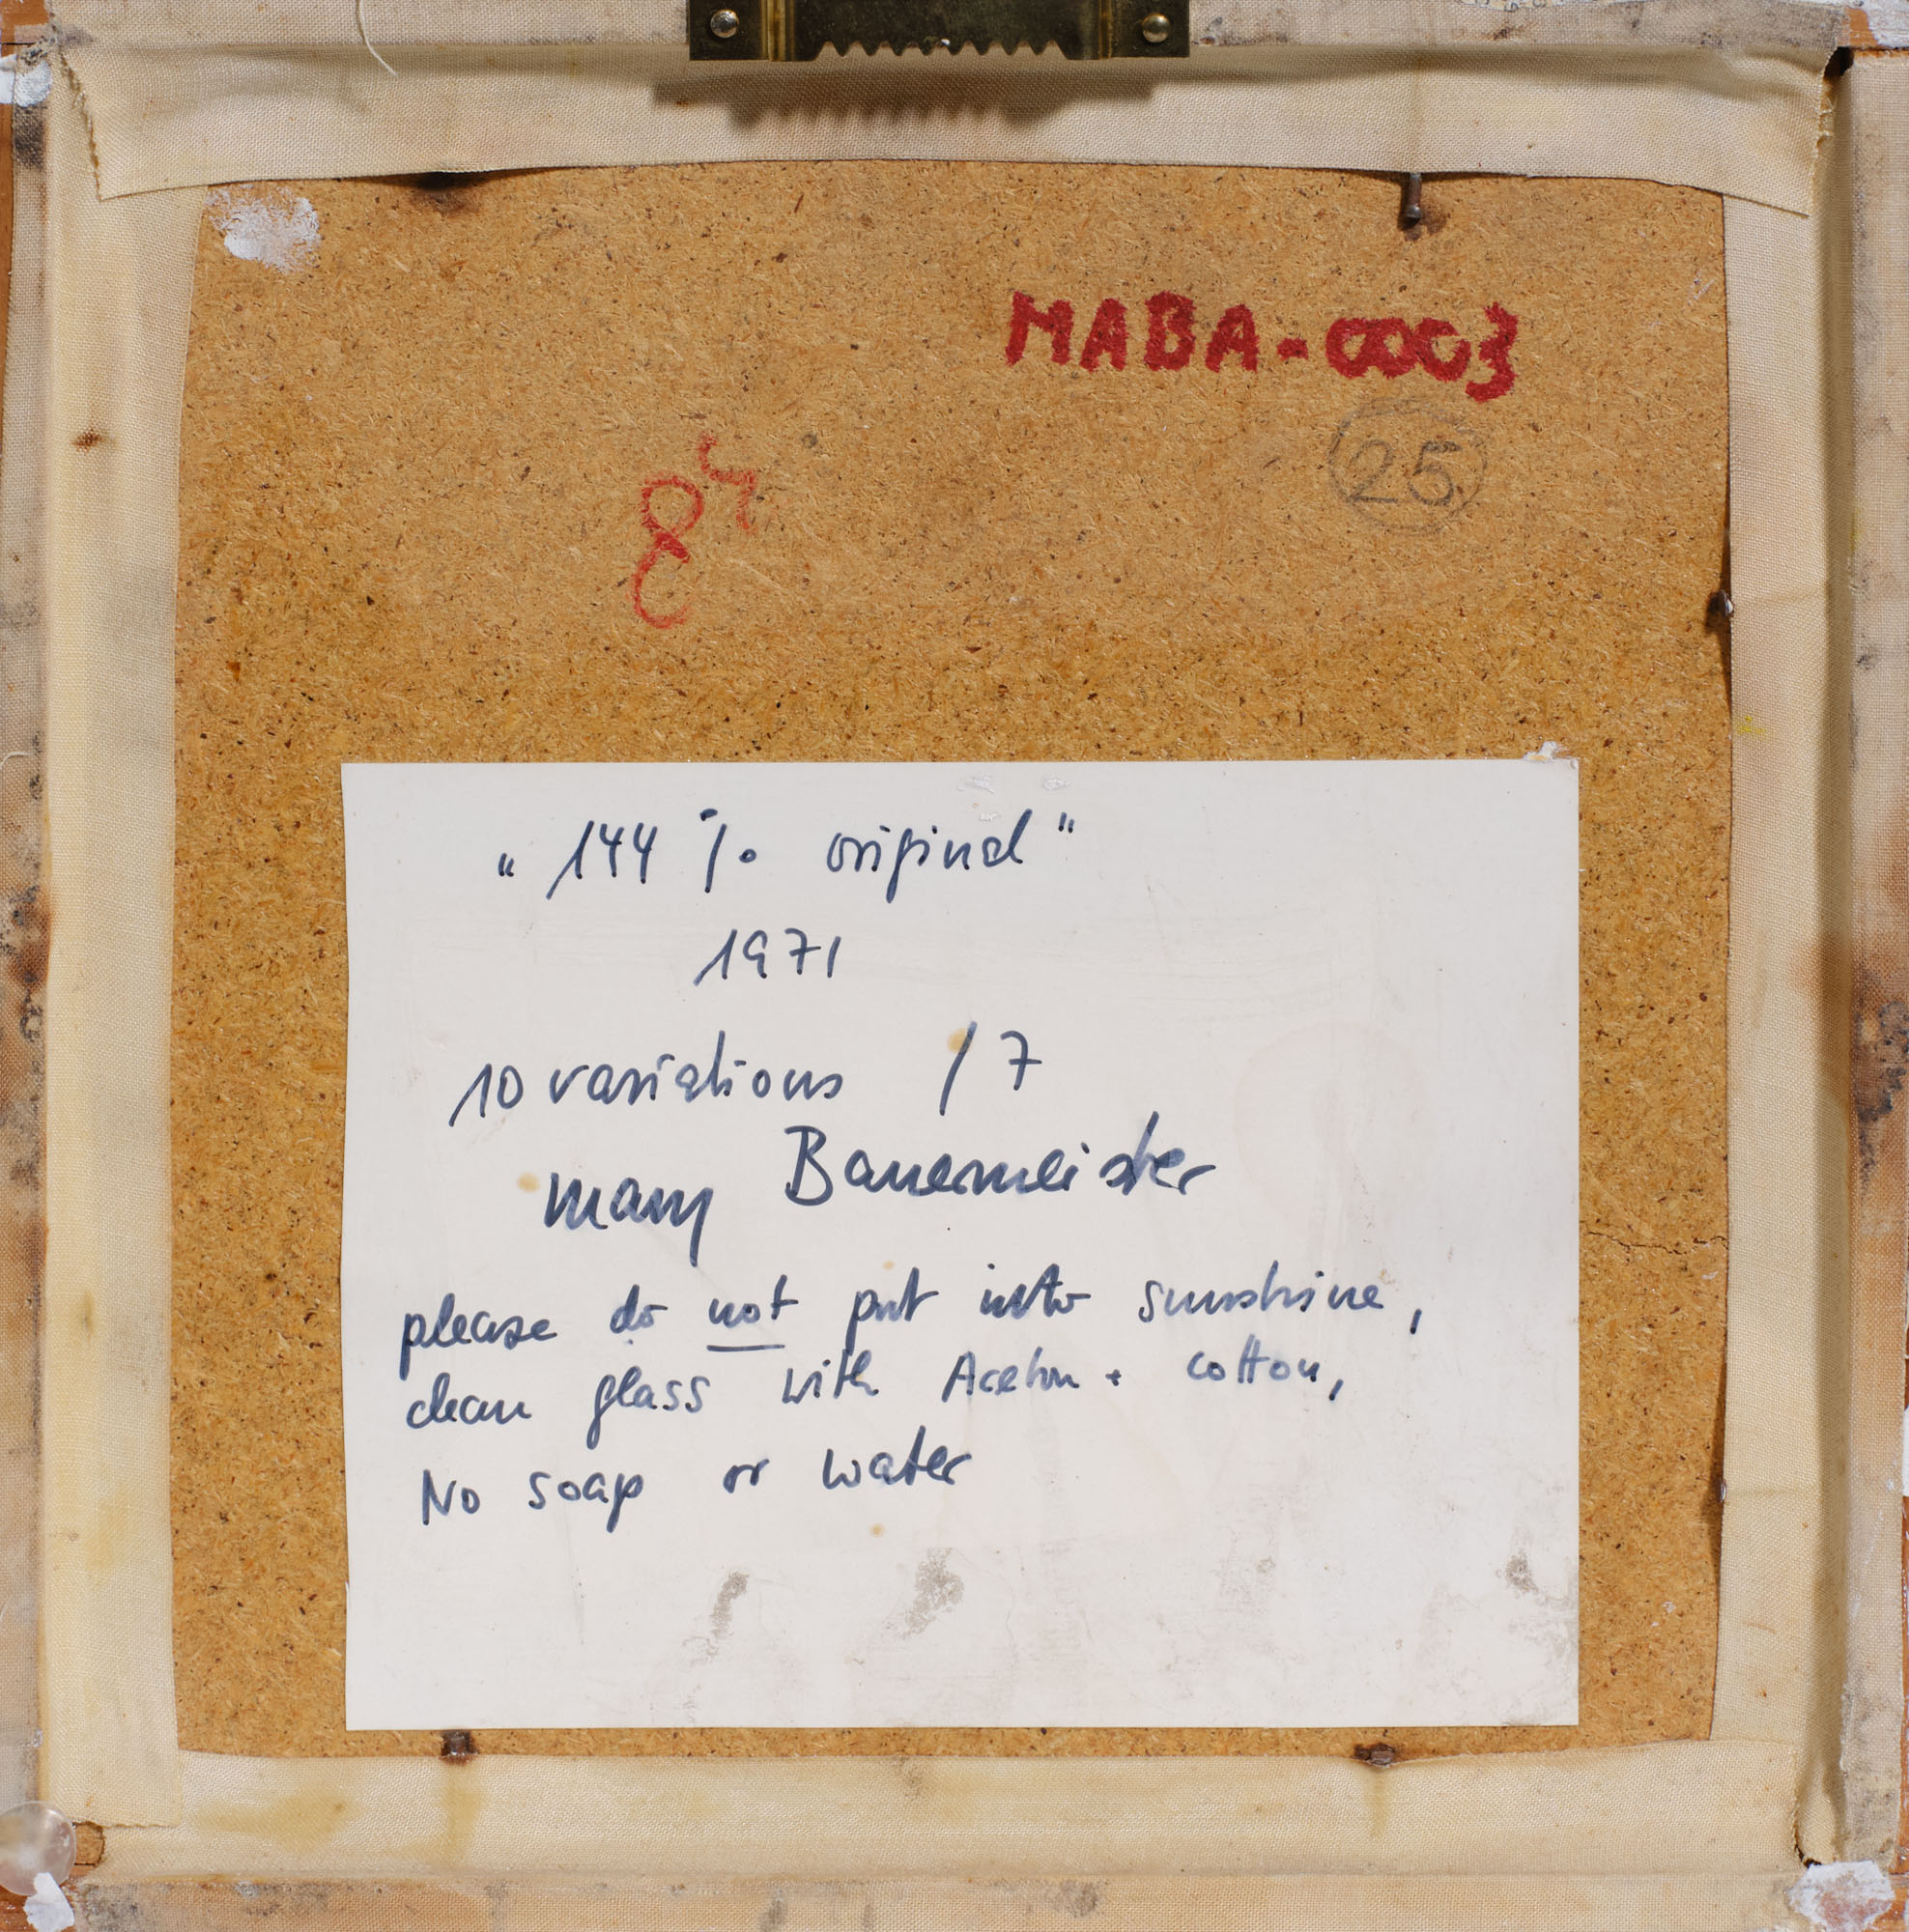 MABA-0003
25
„144 % original"
1971
10 variations / 7
mary Bauermeister
please do not put into sunshine,
clean glass with Aceton + cotton,
No soap or water